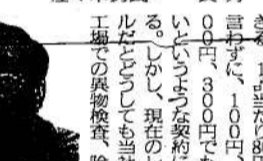 きる。1品当たり8
言わずに、100円、
00円、300円でも
いというような契約に
る。しかし、現在のレ
ルだとどうしても当社
工場での異物検査、除